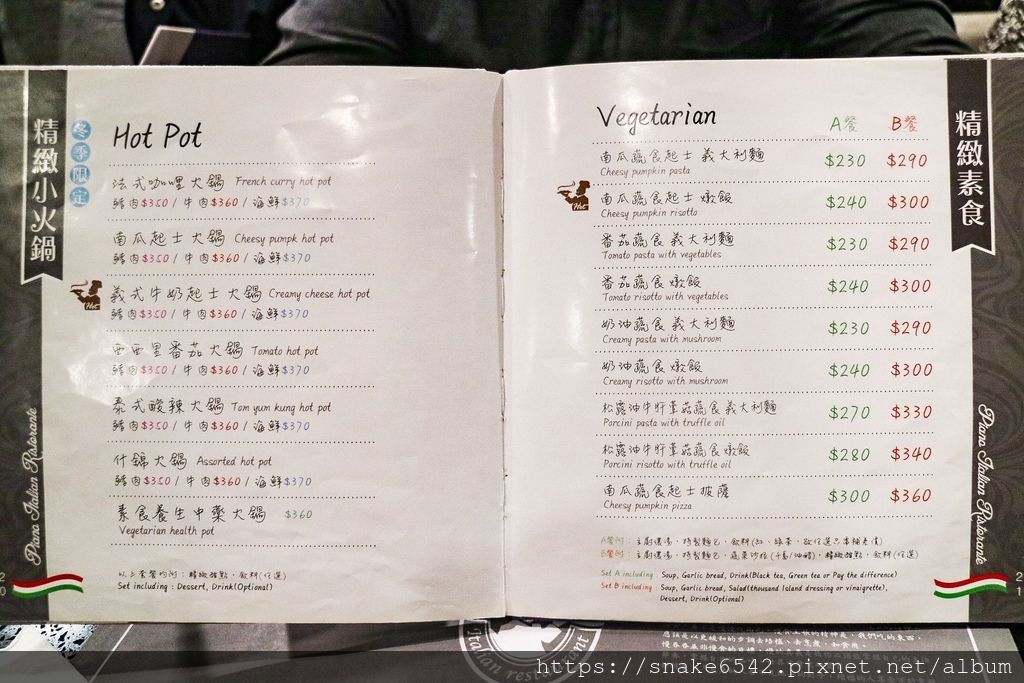 精緻小火鍋
冬季限定
Hot Pot
法式咖哩火鍋 French curry hot pot
豬肉$350 / 牛肉$360 / 海鮮$370
南瓜起士火鍋 Cheesy pumpk hot pot
豬肉$350 / 牛肉$360 / 海鮮$370
義式牛奶起士火鍋 Creamy cheese hot pot
Hot
豬肉$350 / 牛肉$360 / 海鮮$370
西西里番茄火鍋 Tomato hot pot
豬肉$350 / 牛肉$360 / 海鮮$370
泰式酸辣火鍋 Tom yum kung hot pot
豬肉$350 / 牛肉$360 / 海鮮$370
什錦火鍋 Assorted hot pot
豬肉$350 / 牛肉$360 / 海鮮$370
素食養生中藥火鍋 $360
Vegetarian health pot
以上套餐均附：精緻甜點，飲料(任選)
Set including : Dessert, Drink(Optional)
Piano Italian Ristorante
20
Vegetarian A餐 B餐
南瓜蔬食起士 義大利麵 $230 $290
Cheesy pumpkin pasta
南瓜蔬食起士 燉飯 $240 $300
Cheesy pumpkin risotto
Hot
番茄蔬食 義大利麵 $230 $290
Tomato pasta with vegetables
番茄蔬食 燉飯 $240 $300
Tomato risotto with vegetables
奶油蔬食 義大利麵 $230 $290
Creamy pasta with mushroom
奶油蔬食 燉飯 $240 $300
Creamy risotto with mushroom
松露油牛肝蕈菇蔬食 義大利麵 $270 $330
Porcini pasta with truffle oil
松露油牛肝蕈菇蔬食 燉飯 $280 $340
Porcini risotto with truffle oil
南瓜蔬食起士 披薩 $300 $360
Cheesy pumpkin pizza
A餐附：主廚濃湯，特製麵包，飲料(紅、綠茶，欲任選只需補差價)
B餐附：主廚濃湯，特製麵包，蔬果沙拉(千島/油醋)，精緻甜點，飲料(任選)
Set A including : Soup, Garlic bread, Drink(Black tea, Green tea or Pay the difference)
Set B including : Soup, Garlic bread, Salad(thousand Island dressing or vinaigrette),
Dessert, Drink(Optional)
精緻素食
Piano Italian Ristorante
21
Italian restaurant
https://snake6542.pixnet.net/album